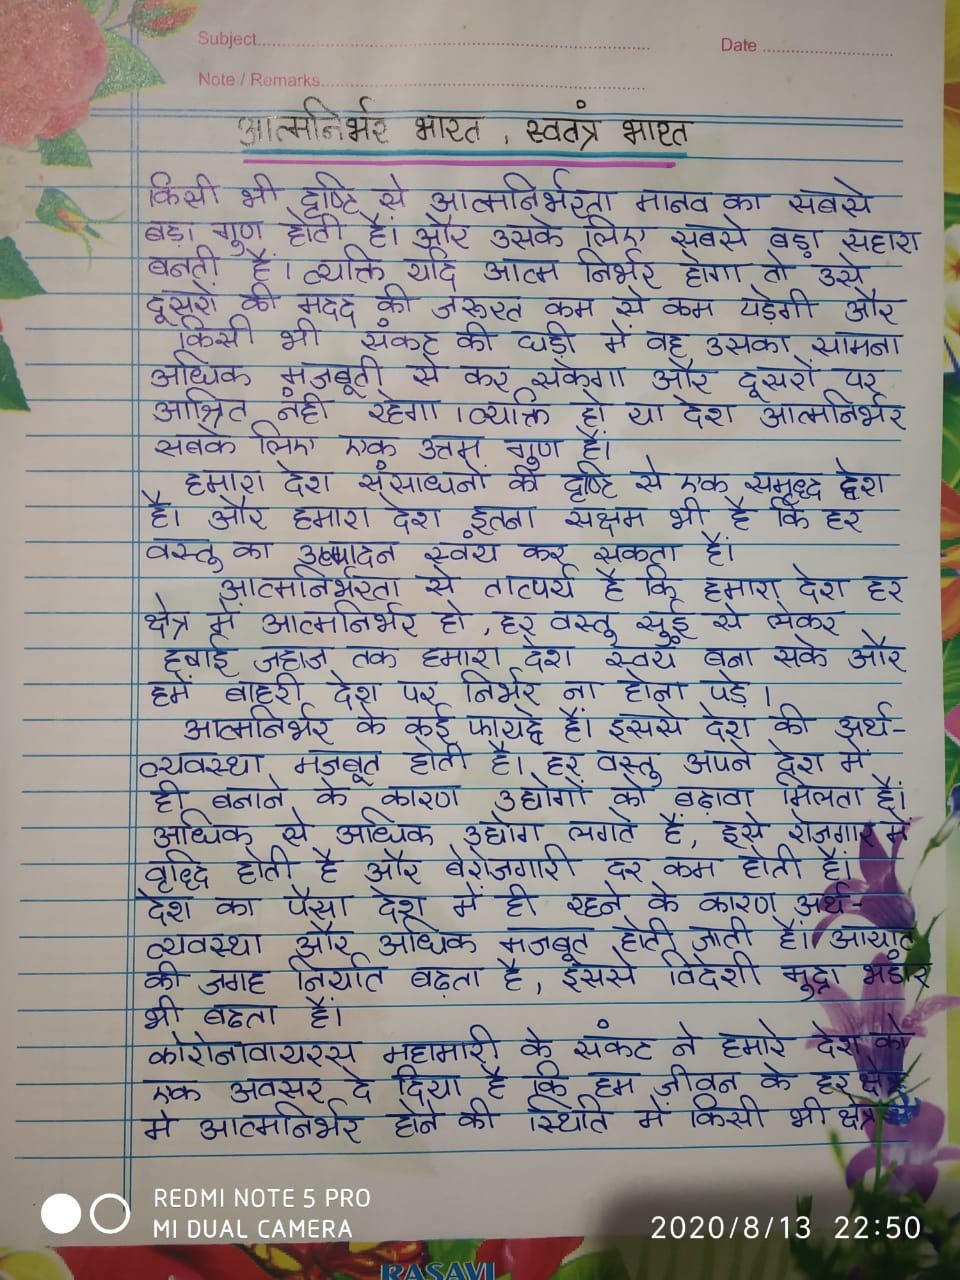 Subject
Date
Note / Remarks
आत्मनिर्भर भारत , स्वतंत्र भारत
किसी भी दृष्टि से आत्मनिर्भरता मानव का सबसे
बड़ा गुण होती है। और उसके लिए सबसे बड़ा सहारा
बनती है। व्यक्ति यदि आत्म निर्भर होगा तो उसे
दूसरों की मदद की जरूरत कम से कम पड़ेगी और
किसी भी संकट की घड़ी में वह उसका सामना
अधिक मजबूती से कर सकेगा और दूसरों पर
आश्रित नहीं रहेगा । व्यक्ति हो या देश आत्मनिर्भर
सबके लिए एक उत्तम गुण है।
हमारा देश संसाधनों की दृष्टि से एक समृध्द देश
है। और हमारा देश इतना सक्षम भी है कि हर
वस्तु का उत्पादन स्वंय कर सकता है।
आत्मनिर्भरता से तात्पर्य है कि हमारा देश हर
क्षेत्र में आत्मनिर्भर हो , हर वस्तु सुई से लेकर
हवाई जहाज तक हमारा देश स्वयं बना सके और
हमें बाहरी देश पर निर्भर ना होना पड़े ।
आत्मनिर्भर के कई फायदे हैं। इससे देश की अर्थ-
व्यवस्था मजबूत होती है। हर वस्तु अपने देश में
ही बनाने के कारण उद्योगों को बढ़ावा मिलता है।
अधिक से अधिक उद्योग लगते हैं, इसे रोजगार में
वृध्दि होती है और बेरोजगारी दर कम होती है।
देश का पैसा देश में ही रहने के कारण अर्थ-
व्यवस्था और अधिक मजबूत होती जाती है। आयात
की जगह निर्यात बढ़ता है, इससे विदेशी मुद्रा भंडार
भी बढता है।
कोरोनावायरस महामारी के संकट ने हमारे देश को
एक अवसर दे दिया है कि हम जीवन के हर क्षेत्र
मे आत्मनिर्भर होने की स्थिति में किसी भी क्षेत्र में
REDMI NOTE 5 PRO
MI DUAL CAMERA
2020/8/13 22:50
RASAVI